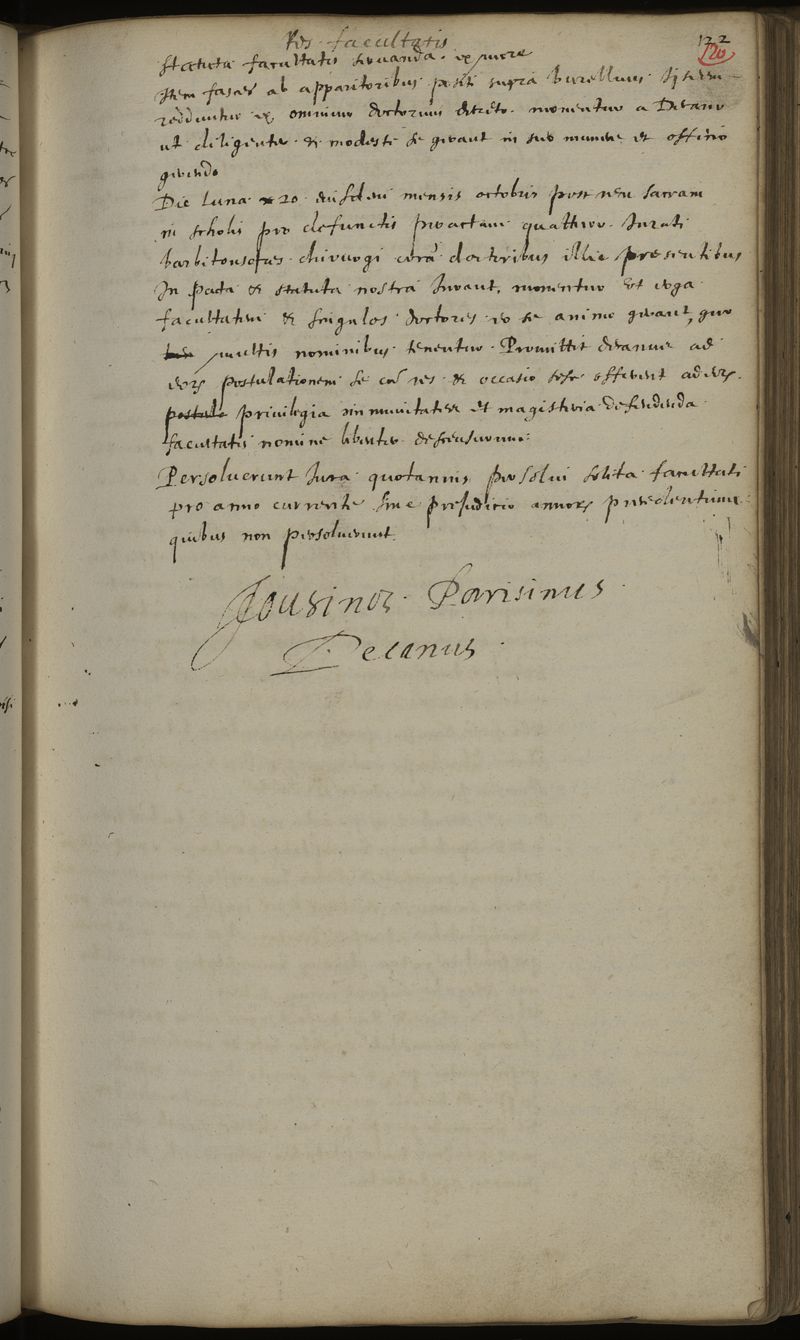 Res facultatis
122
120
statuta facultatis servanda
Item fasces ab apparitoribus positi supra burellum
redduntur ex omnium doctorum decreto. monentur a Decano
ut diligenter & modeste se gerant in suo munere et officio
gerendo
Die lunæ 20 mensis octobris post rem sacram
in scholis pro defunctis peractam quattuor Jurati
barbitonsores chirurgi corã doctoribus illic presentibus
In pacta & statuta nostra Jurant, monentur ut erga
facultatem & singulos doctores eo se animo gerant, quo
multis nominibus tenentur. Promittit decanus ad
eorum postulationem se cũ res & occasio sese offerent
postula privilegia immunitates et magisteria defendenda
facultatis nomine libenter defensurum:
Persoluerunt Jura quotannis persolui solita facultati
pro anno currente sine prejuditio annorum precedentium
quibus non persoluerunt.
Cousinot Parisinus
Decanus